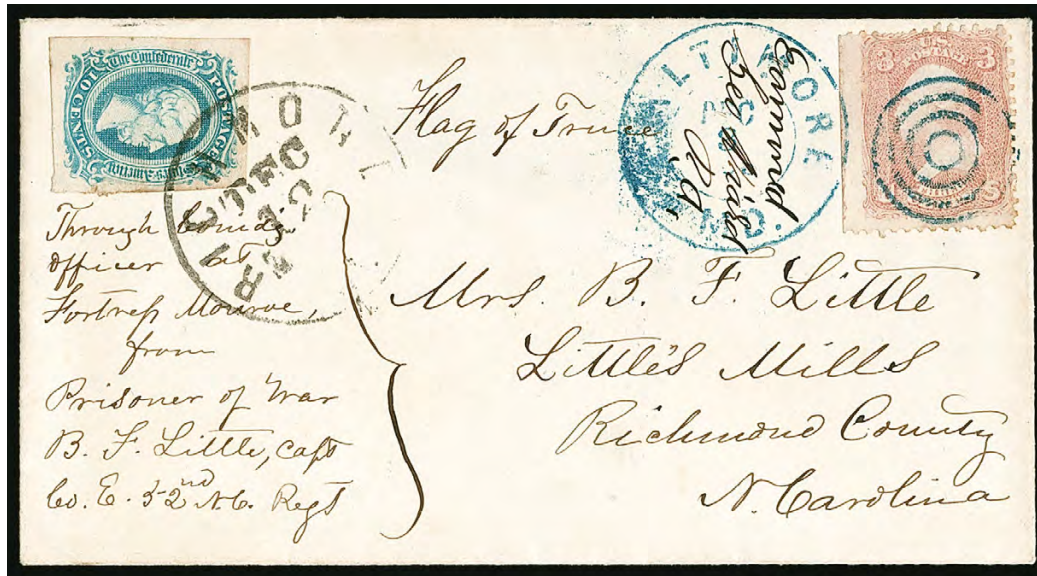 The Confederate
States of America
POSTAGE
10 CENTS
RICHMOND
DEC
Flag of Truce
BALTIMORE
MD.
Examined
Va.
U.S.
POSTAGE
3
3
Through
officer at
Fortress Monroe,
from
Prisoner of War
B. F. Little, Capt
Co. E. 52nd N.C. Regt
Mrs. B. F. Little
Little's Mills
Richmond County
N. Carolina